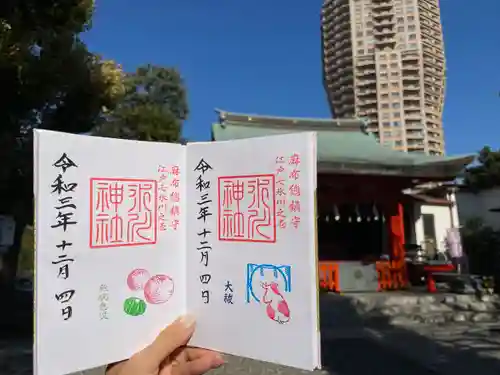 麻布総鎮守
江戸七氷川之
氷川神社
大祓
令和三年十二月四日
麻布総鎮守
江戸七氷川之
氷川神社
令和三年十二月四日